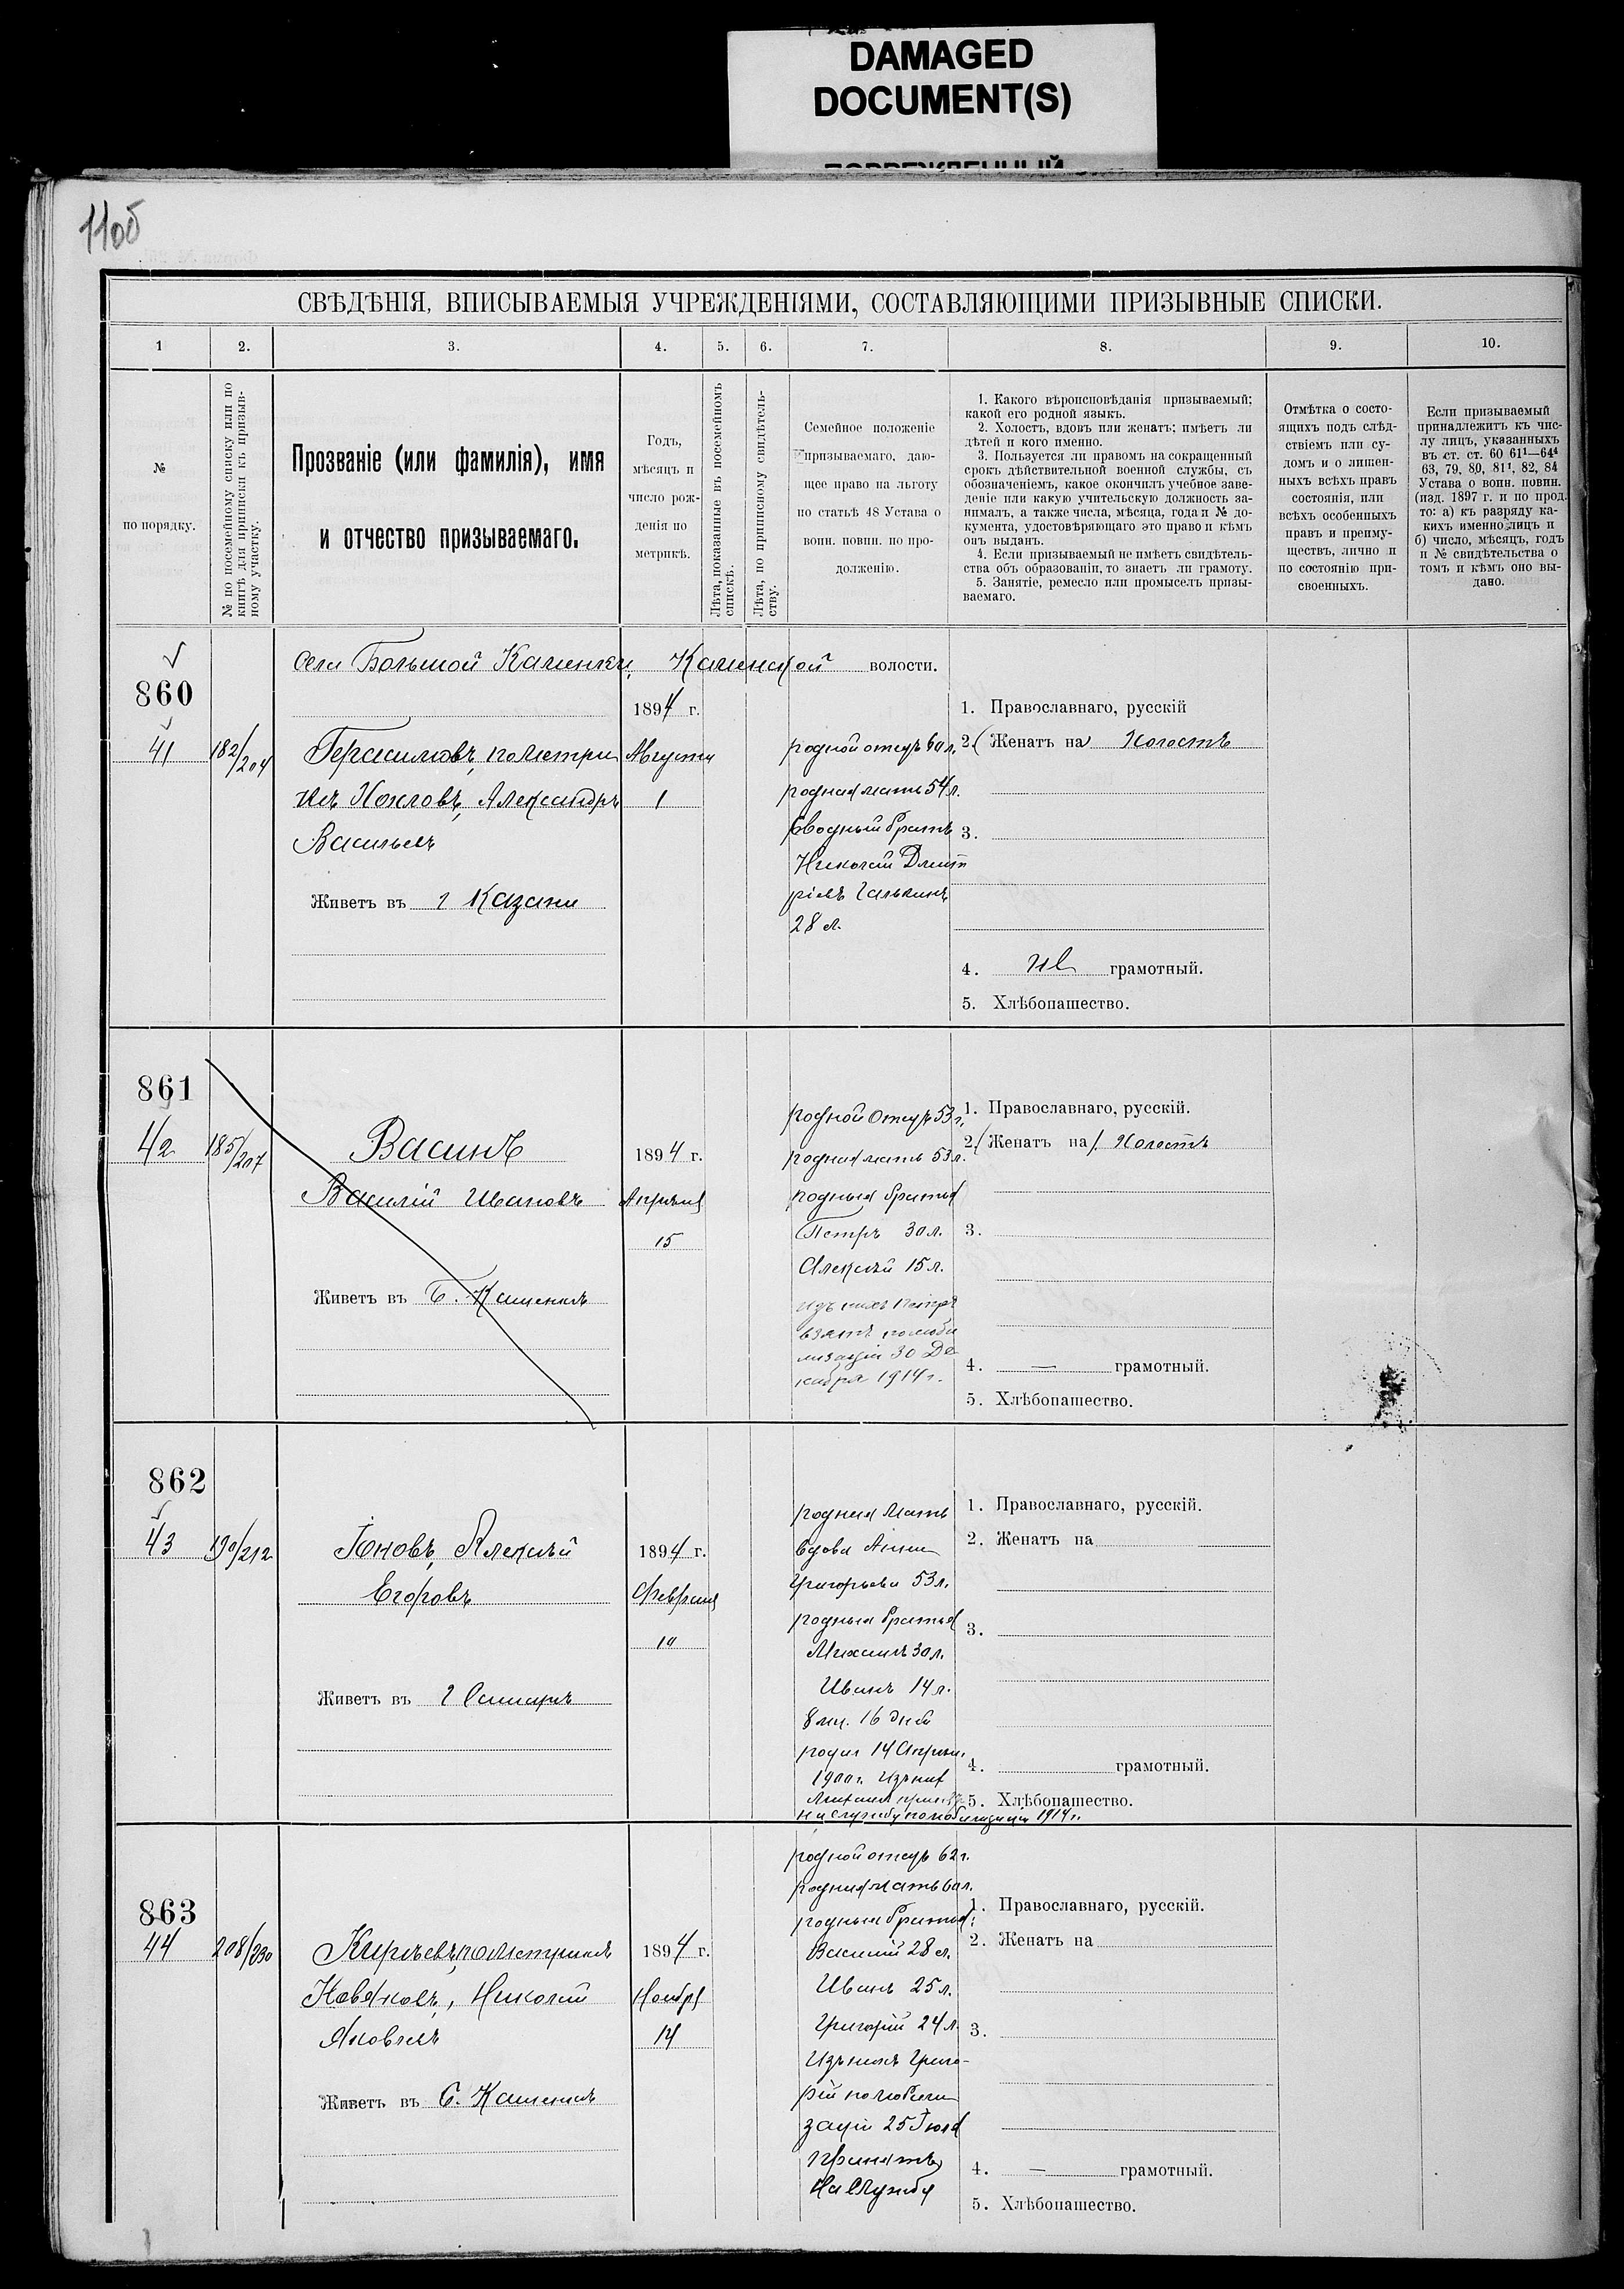 DAMAGED
DOCUMENT(S)
1105
СВѢДѢНІЯ, ВПИСЫВАЕМЫЯ УЧРЕЖДЕНІЯМИ, СОСТАВЛЯЮЩИМИ ПРИЗЫВНЫЕ СПИСКИ.
1 2. 3. 4. 5. 6. 7. 8. 9. 10.
№
по порядку.
№ по посемейному списку или по
книгѣ для приписки къ призыв-
ному участку.
Прозваніе (или фамилія), имя
и отчество призываемаго.
Годъ,
мѣсяцъ и
число рож-
денія по
метрикѣ.
Лѣта, показанные въ посемейномъ
спискѣ.
Лѣта, по приписному свидѣтель-
ству.
Семейное положеніе
призываемаго, даю-
щее право на льготу
по статьѣ 48 Устава о
воин. повин. по про-
долженію.
1. Какого вѣроисповѣданія призываемый;
какой его родной языкъ.
2. Холостъ, вдовъ или женатъ; имѣетъ ли
дѣтей и кого именно.
3. Пользуется ли правомъ на сокращенный
срокъ дѣйствительной военной службы, съ
обозначеніемъ, какое окончилъ учебное заве-
деніе или какую учительскую должность за-
нималъ, а также числа, мѣсяца, года и № до-
кумента, удостовѣряющаго это право и кѣмъ
онъ выданъ.
4. Если призываемый не имѣетъ свидѣтель-
ства объ образованіи, то знаетъ ли грамоту.
5. Занятіе, ремесло или промыселъ призы-
ваемаго.
Отмѣтка о состо-
ящихъ подъ слѣд-
ствіемъ или су-
домъ и о лишен-
ныхъ всѣхъ правъ
состоянія, или
всѣхъ особенныхъ
правъ и преиму-
ществъ, лично и
по состоянію при-
своенныхъ.
Если призываемый
принадлежитъ къ чис-
лу лицъ, указанныхъ
въ ст. ст. 60 61¹—64⁴
63, 79, 80, 81¹, 82, 84
Устава о воин. повин.
(изд. 1897 г. и по прод.
то: а) къ разряду ка-
кихъ именно лицъ и
б) число, мѣсяцъ, годъ
и № свидѣтельства о
томъ и кѣмъ оно вы-
дано.
Села Большой Каменки, Каменской волости.
860
41
182/204
Герасимовъ, по метри
кѣ Хохловъ, Александръ
Васильевъ
Живетъ въ г Казани
1894 г.
Августа
1
родной отецъ 60 л.
родная мать 54 л.
Сводный братъ
Николай Дмит
ріевъ Галькинъ
28 л.
1. Православнаго, русскій
2. (Женатъ на) Холостъ
3.
4. не грамотный.
5. Хлѣбопашество.
861
42
185/207
Васинъ
Василій Ивановъ
Живетъ въ Б. Каменкѣ
1894 г.
Апрѣля
15
родной отецъ 53 г.
родная мать 53 л.
родныя братья
Петръ 30 л.
Алексѣй 15 л.
изъ нихъ Петръ
взятъ по моби
лизаціи 30 Де
кабря 1914 г.
1. Православнаго, русскій.
2. (Женатъ на). Холостъ
3.
4. — грамотный.
5. Хлѣбопашество.
862
43
190/212
Іоновъ, Алексѣй
Егоровъ
Живетъ въ г Самарѣ
1894 г.
Февраля
10
родная мать
вдова Анна
Григорьева 53 л.
родныя братья
Михаилъ 30 л.
Иванъ 14 л.
8 мц. 16 дней
родил 14 Апрѣля
1900 г. Изъ них
Михаил
на службу по мобилизаціи 1914 г.
1. Православнаго, русскій.
2. Женатъ на
3.
4. грамотный.
5. Хлѣбопашество.
863
44
208/230
Кирѣевъ, по метрикѣ
Новяковъ, Николай
Яковлевъ
Живетъ въ Б. Каменкѣ
1894 г.
Ноября
14
родной отецъ 62 г.
родная мать 60 л.
родныя братья:
Василій 28 л.
Иванъ 25 л.
Григорій 24 л.
Изъ нихъ Григо-
рій по мобили
заціи 25 Іюля
принятъ
на службу
1. Православнаго, русскій.
2. Женатъ на
3.
4. — грамотный.
5. Хлѣбопашество.